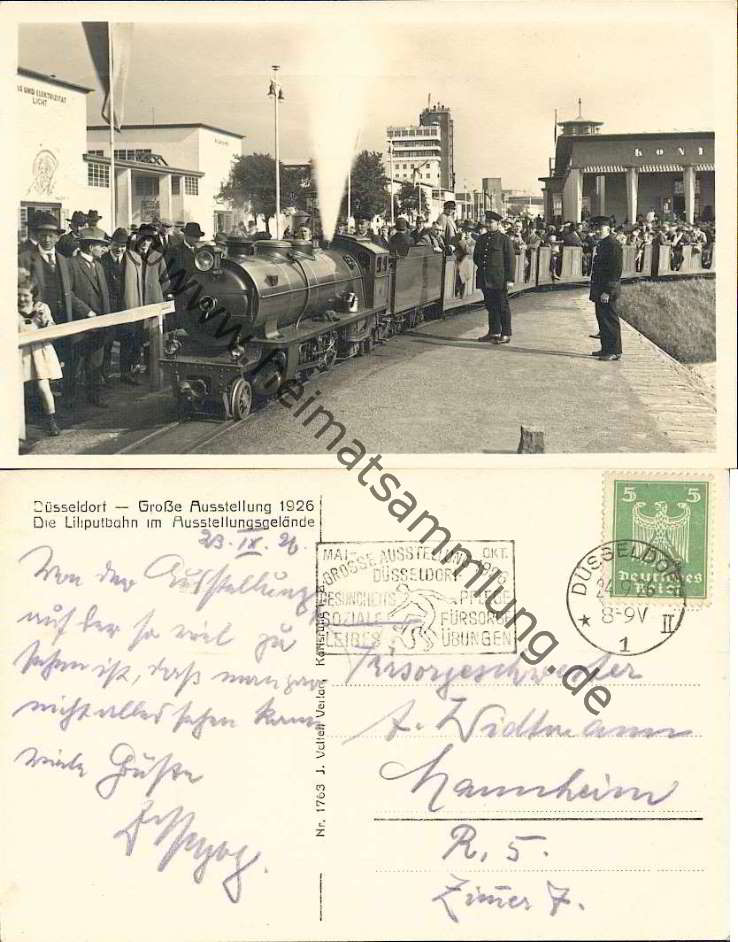 UND ELEKTRIZITÄT
LICHT
KONI
www.heimatsammlung.de
Düsseldorf — Große Ausstellung 1926
Die Liliputbahn im Ausstellungsgelände
23. IX. 26.
Von der Ausstellung
auf der so viel zu
sehen ist, daß man gar
nicht alles sehen kann
viele Grüße
Herzog.
Nr. 1763 J. Velten Verlag Karlsruhe
MAI- OKT.
GROSSE AUSSTELLUNG 1926
DÜSSELDORF
GESUNDHEITSPFLEGE
SOZIALE FÜRSORGE
LEIBESÜBUNGEN
5 5
Deutsches
Reich
DÜSSELDORF
24.9.26
8-9V
★ 1 II
Fürsorgeschwester
A. Widtmann
Mannheim
R, 5.
Zimmer 7.